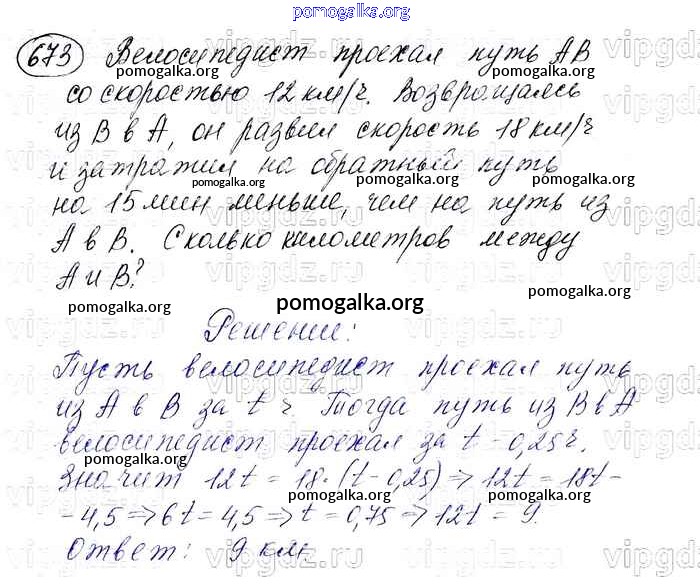 pomogalka.org
673 Велосипедист проехал путь AB
pomogalka.org pomogalka.org
со скоростью 12 км/ч. Возвращаясь
из B в A, он развил скорость 18 км/ч
и затратил на обратный путь
pomogalka.org pomogalka.org
на 15 мин меньше, чем на путь из
A в B. Сколько километров между
A и B?
pomogalka.org pomogalka.org pomogalka.org
Решение:
Пусть велосипедист проехал путь
pomogalka.org pomogalka.org
из A в B за t ч. Тогда путь из B в A
велосипедист проехал за t - 0,25 ч.
pomogalka.org
Значит 12t = 18·(t - 0,25) ⇒ 12t = 18t -
pomogalka.org pomogalka.org
- 4,5 ⇒ 6t = 4,5 ⇒ t = 0,75 ⇒ 12t = 9.
Ответ: 9 км.
pomogalka.org pomogalka.org
vipgdz.ru